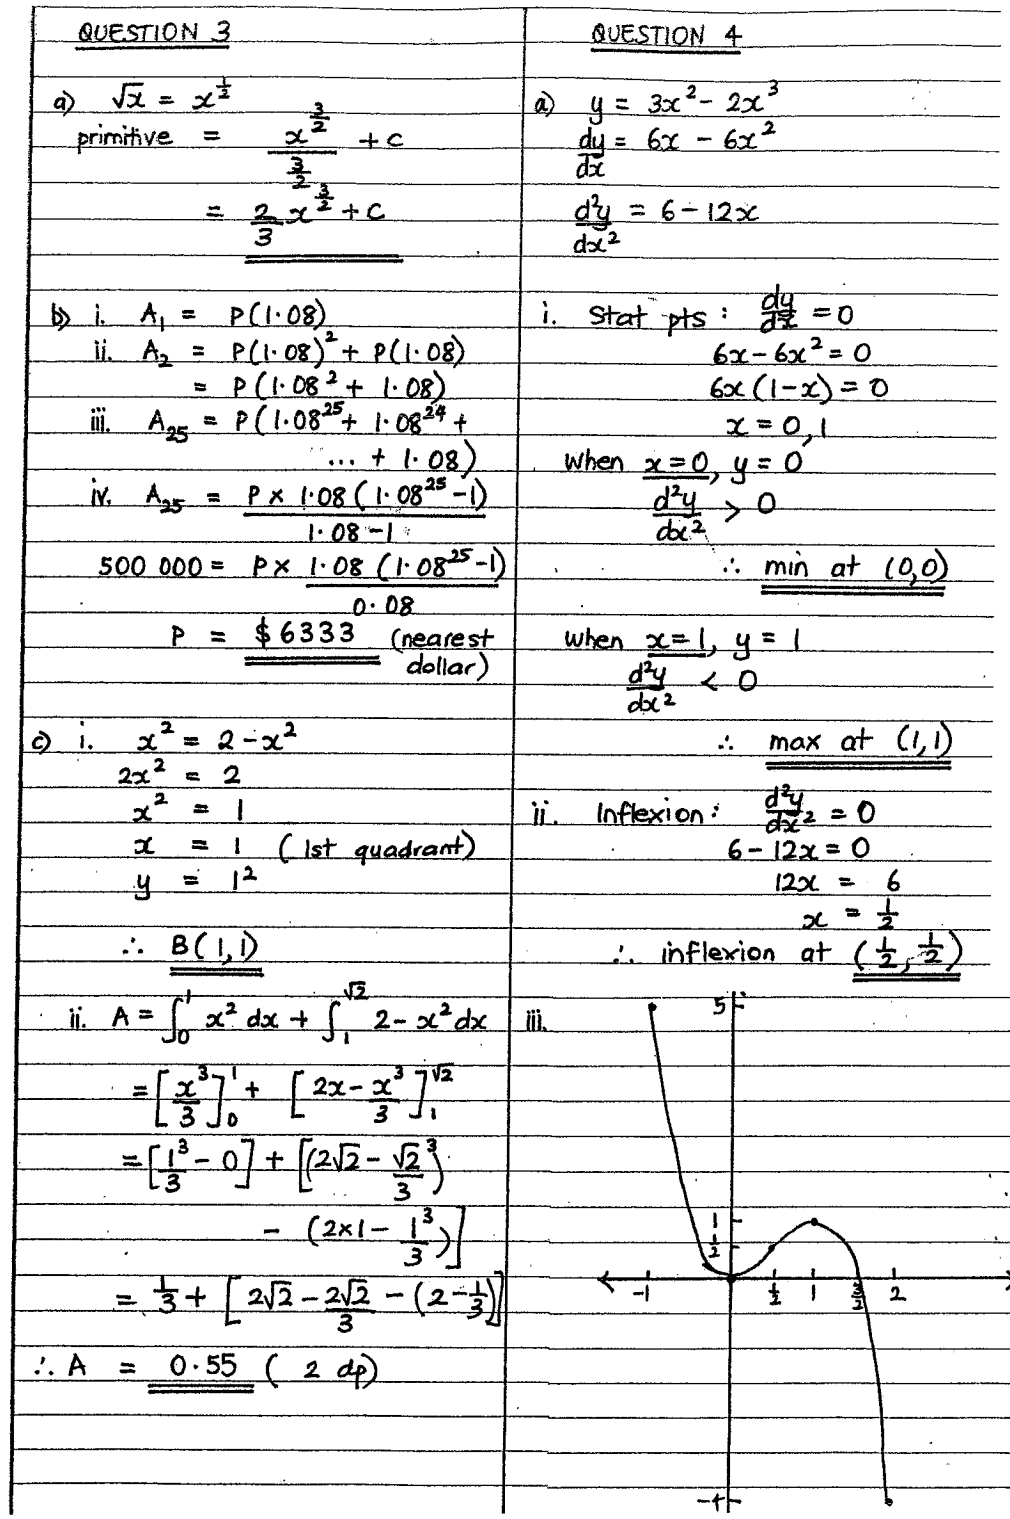 QUESTION 3
a) √x = x^(1/2)
primitive = x^(3/2) / (3/2) + c
= 2/3 x^(3/2) + c
b) i. A₁ = P(1.08)
ii. A₂ = P(1.08)² + P(1.08)
= P(1.08² + 1.08)
iii. A₂₅ = P(1.08²⁵ + 1.08²⁴ +
... + 1.08)
iv. A₂₅ = P × 1.08 (1.08²⁵ - 1) / 1.08 - 1
500 000 = P × 1.08 (1.08²⁵ - 1) / 0.08
P = $6333 (nearest
dollar)
c) i. x² = 2 - x²
2x² = 2
x² = 1
x = 1 (1st quadrant)
y = 1²
∴ B(1,1)
ii. A = ∫₀¹ x² dx + ∫₁^√2 2 - x² dx
= [x³/3]₀¹ + [2x - x³/3]₁^√2
= [1³/3 - 0] + [(2√2 - √2³/3)
- (2×1 - 1³/3)]
= 1/3 + [2√2 - 2√2/3 - (2 - 1/3)]
∴ A = 0.55 (2 dp)
QUESTION 4
a) y = 3x² - 2x³
dy/dx = 6x - 6x²
d²y/dx² = 6 - 12x
i. Stat pts : dy/dx = 0
6x - 6x² = 0
6x(1-x) = 0
x = 0, 1
When x=0, y = 0
d²y/dx² > 0
∴ min at (0,0)
When x=1, y = 1
d²y/dx² < 0
∴ max at (1,1)
ii. Inflexion: d²y/dx² = 0
6 - 12x = 0
12x = 6
x = 1/2
∴ inflexion at (1/2, 1/2)
iii.
5
1
1/2
-1 1/2 1 3/2 2
-4